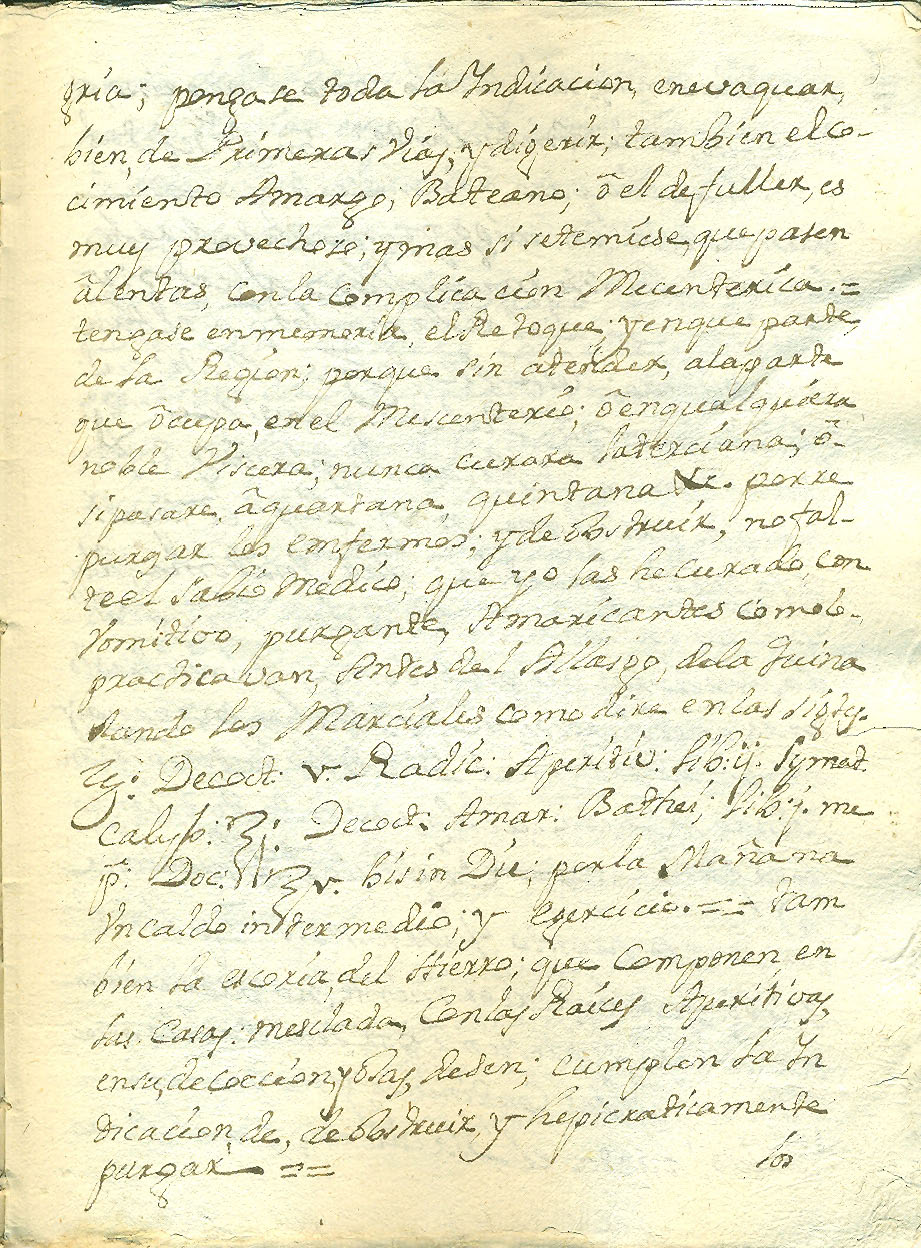 gria; pongase toda la Yndicacion, enevaquar,
bien, de Primeras Vias, y digerir; tambien el co-
cimiento Amargo; Bateano; ô el de fuller, es
muy provechoso; y mas si setemiese, que pasen
âlentas, con la complicacion Mecenterica.=
tengase enmemoria, el Retoque; y enque parte,
de la Region; porque sin atender, alaparte
que ôcupa, en el Mescenterio; ô enqualquiera
noble Viscera; nunca curara laterciana; ô-
sipasare, âquartana, quintana &c. porre
purgar los emfermos; y deobstruir, nofal-
teel Sabio Medico; que yo las he curado, con
Vomitivo, purgante, Amaricantes comolo-
practicavan, Antes del Allasgo, dela Quina
dando los Marciales como dire en las sigtes.
Rp. Decoct: v. Radic: Aperitiv: lib:ij. Symat.
Calyb: ʒj: Decoct: Amar: Bathei; lib:j. me
p: Doc: ℥v. bis in Die; por la Mañana
Uncaldo intermedio; y egercicio.== tam
bien la escoria, del Hierro; que Componen en
las Casas: mesclada, Conlas Raices Aperitivas,
ensu, decoccion,
cumplen la Yn
dicacion, de, deobstruir, y hepicraticamente
purgar ==
los